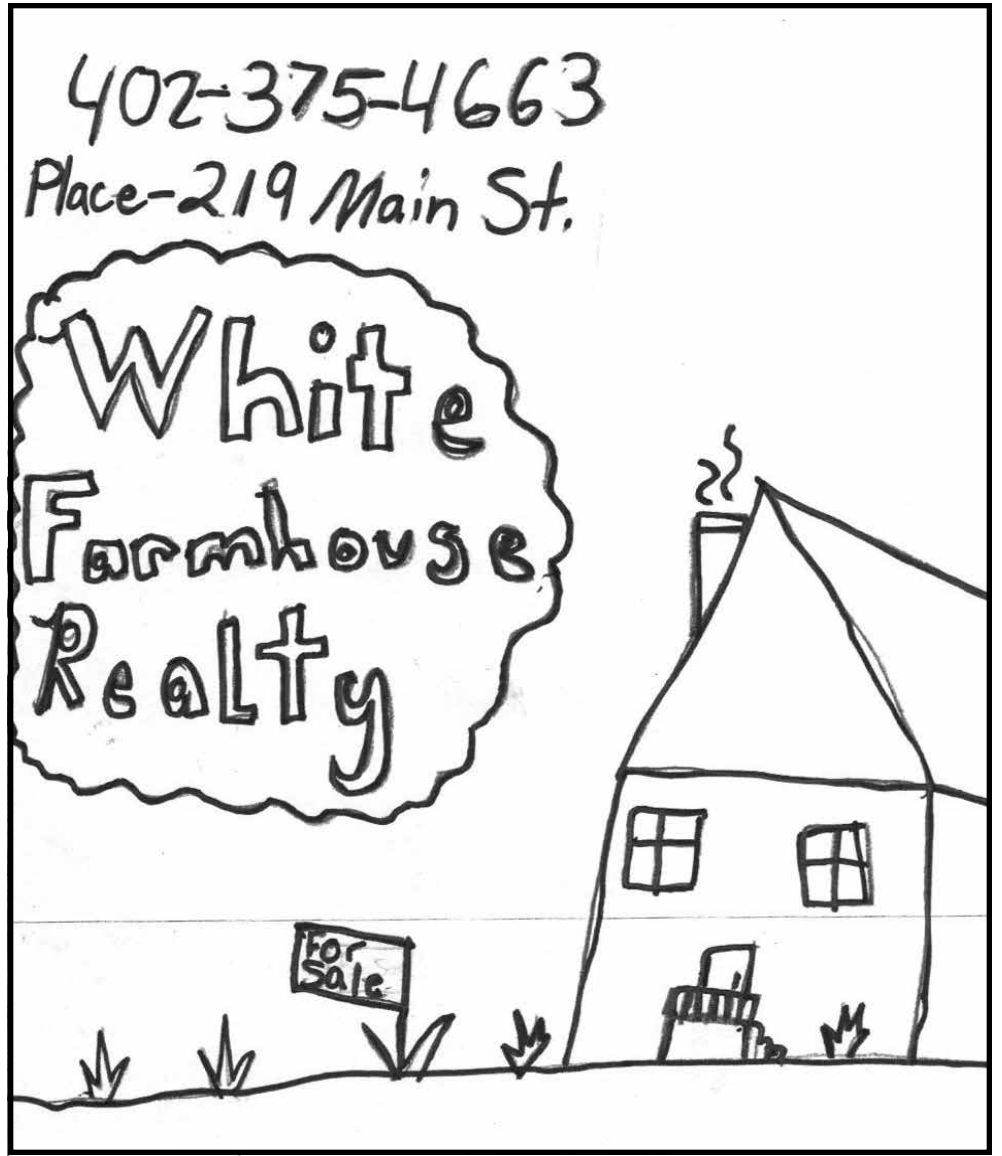 402-375-4663
Place-219 Main St.
White
Farmhouse
Realty
For
Sale